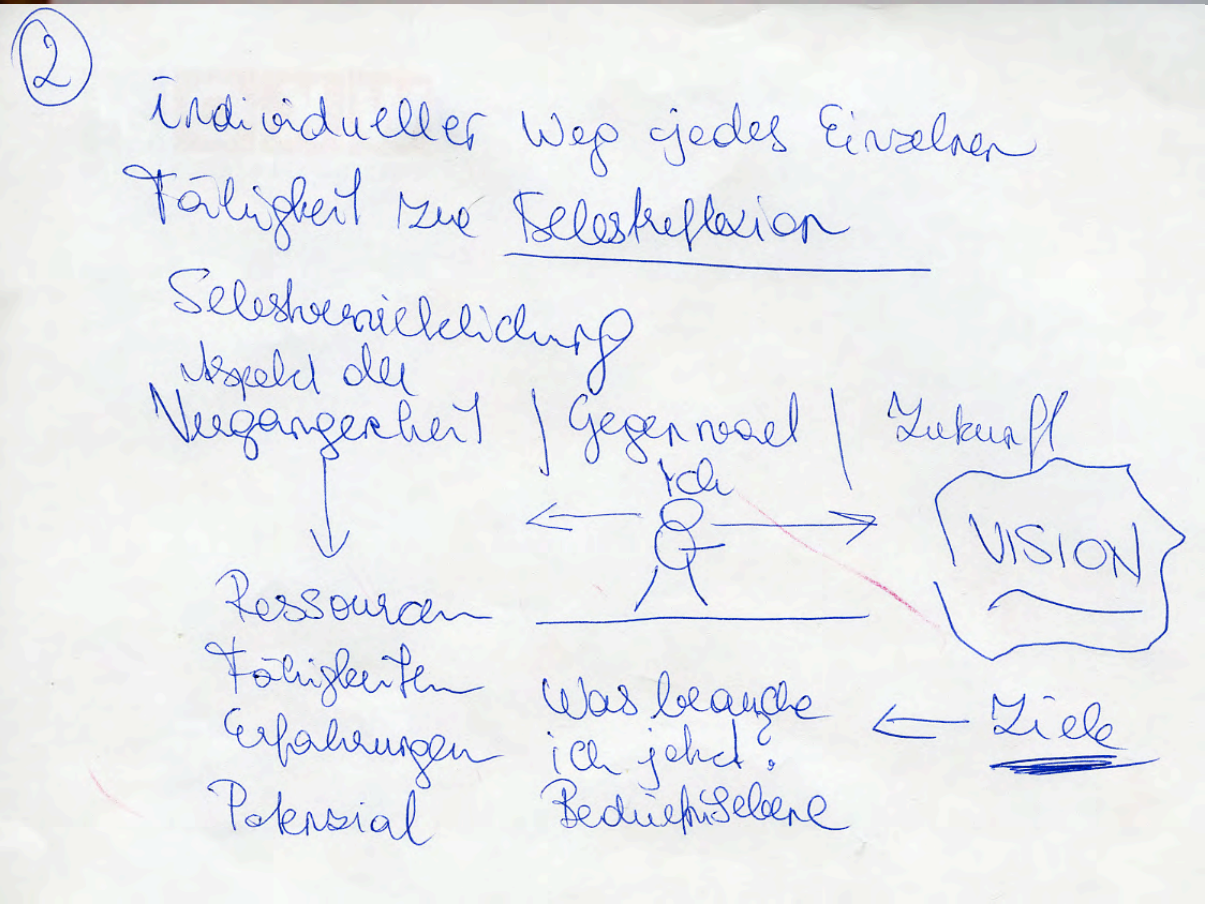 2
Individueller Weg jedes Einzelnen
Fähigkeit zur Selbstreflexion
Selbstverwirklichung
Aspekt der
Vergangenheit | Gegenwart | Zukunft
Ich
VISION
Ressourcen
Fähigkeiten
Erfahrungen
Potenzial
Was brauche
ich jetzt?
Bedürfnisebene
Ziele